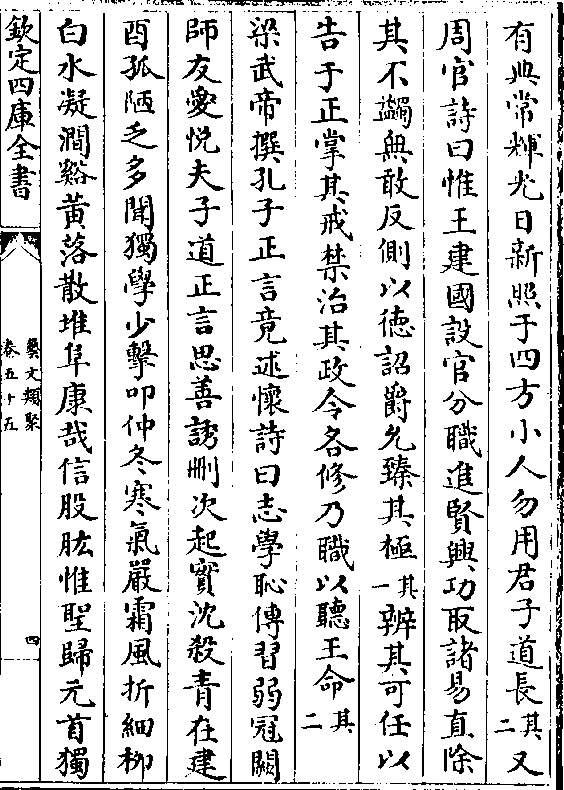 有典常輝光日新照于四方小人勿用君子道長其二又
周官詩曰惟王建國設官分職進賢興功取諸易直除
其不蠲無敢反側以徳詔爵允臻其極其一辨其可任以
告于正掌其戒禁治其政令各修乃職以聽王命其二
梁武帝撰孔子正言竟述懷詩曰志學恥傳習弱冠闕
師友愛悦夫子道正言思善誘刪次起實沈殺青在建
酉孤陋乏多聞獨學少擊叩仲冬寒氣嚴霜風折細柳
白水凝澗谿黄落散堆阜康哉信股肱惟聖歸元首獨
欽定四庫全書
藝文類聚
卷五十五
四